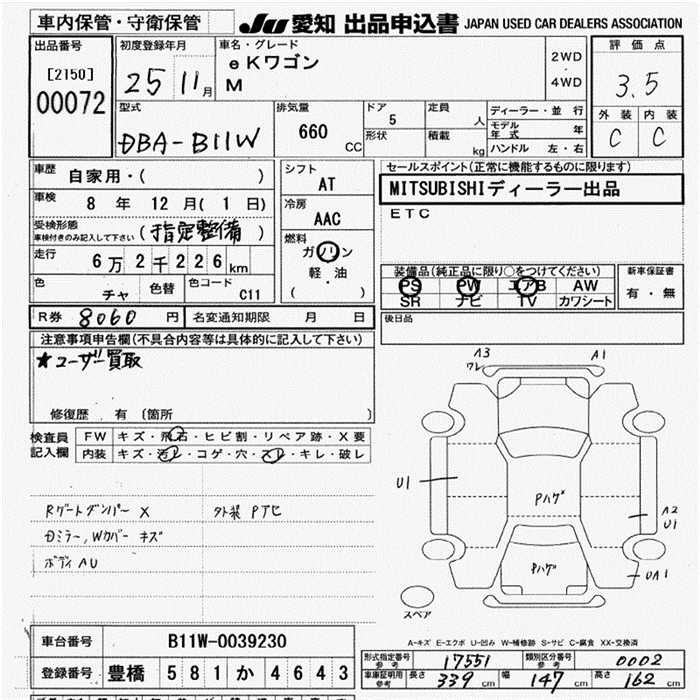 車内保管・守衛保管
JU 愛知 出品申込書 JAPAN USED CAR DEALERS ASSOCIATION
出品番号
[2150]
00072
初度登録年月
25 11月
車名・グレード
eKワゴン
M
2WD
・
4WD
評価点
3.5
外装 内装
C C
型式
DBA-B11W
排気量
660 CC
ドア
5
形状
定員
人
積載
kg
ディーラー・並行
モデル年式 年
ハンドル 左・右
車歴
自家用・( )
車検
8 年 12 月( 1 日)
受検形態
車検付きのみ記入して下さい
(指定整備)
走行
6万2千226km
色
チャ
色替
色コード
C11
シフト
AT
冷房
AAC
燃料
ガソリン
軽・油
( )
セールスポイント(正常に機能するものに限ります)
MITSUBISHIディーラー出品
ETC
装備品(純正品に限り○をつけてください)
PS PW エアB AW
SR ナビ TV カワシート
新車保証書
有・無
R券 8060 円
名変通知期限 月 日
後日品
注意事項申告欄(不具合内容等は具体的に記入して下さい)
★ユーザー買取
修復歴 有 [箇所 ]
検査員
記入欄
FW キズ・飛石・ヒビ割・リペア跡・X要
内装 キズ・汚レ・コゲ・穴・スレ・キレ・破レ
Rゲートダンパー X
外装 Pアセ
Dミラー,Wカバー キズ
ボディ AU
A3
ワレ
A1
U1
Pハゲ
A2
U1
Pハゲ
UA1
スペア
A-キズ E-エクボ U-凹み W-補修跡 S-サビ C-腐食 XX-交換済
車台番号
B11W-0039230
登録番号
豊橋 581 か 4643
形式指定番号
参考
17551
類別区分番号
参考
0002
車庫証明用
参考
長さ 339 cm
幅 147 cm
高さ 162 cm